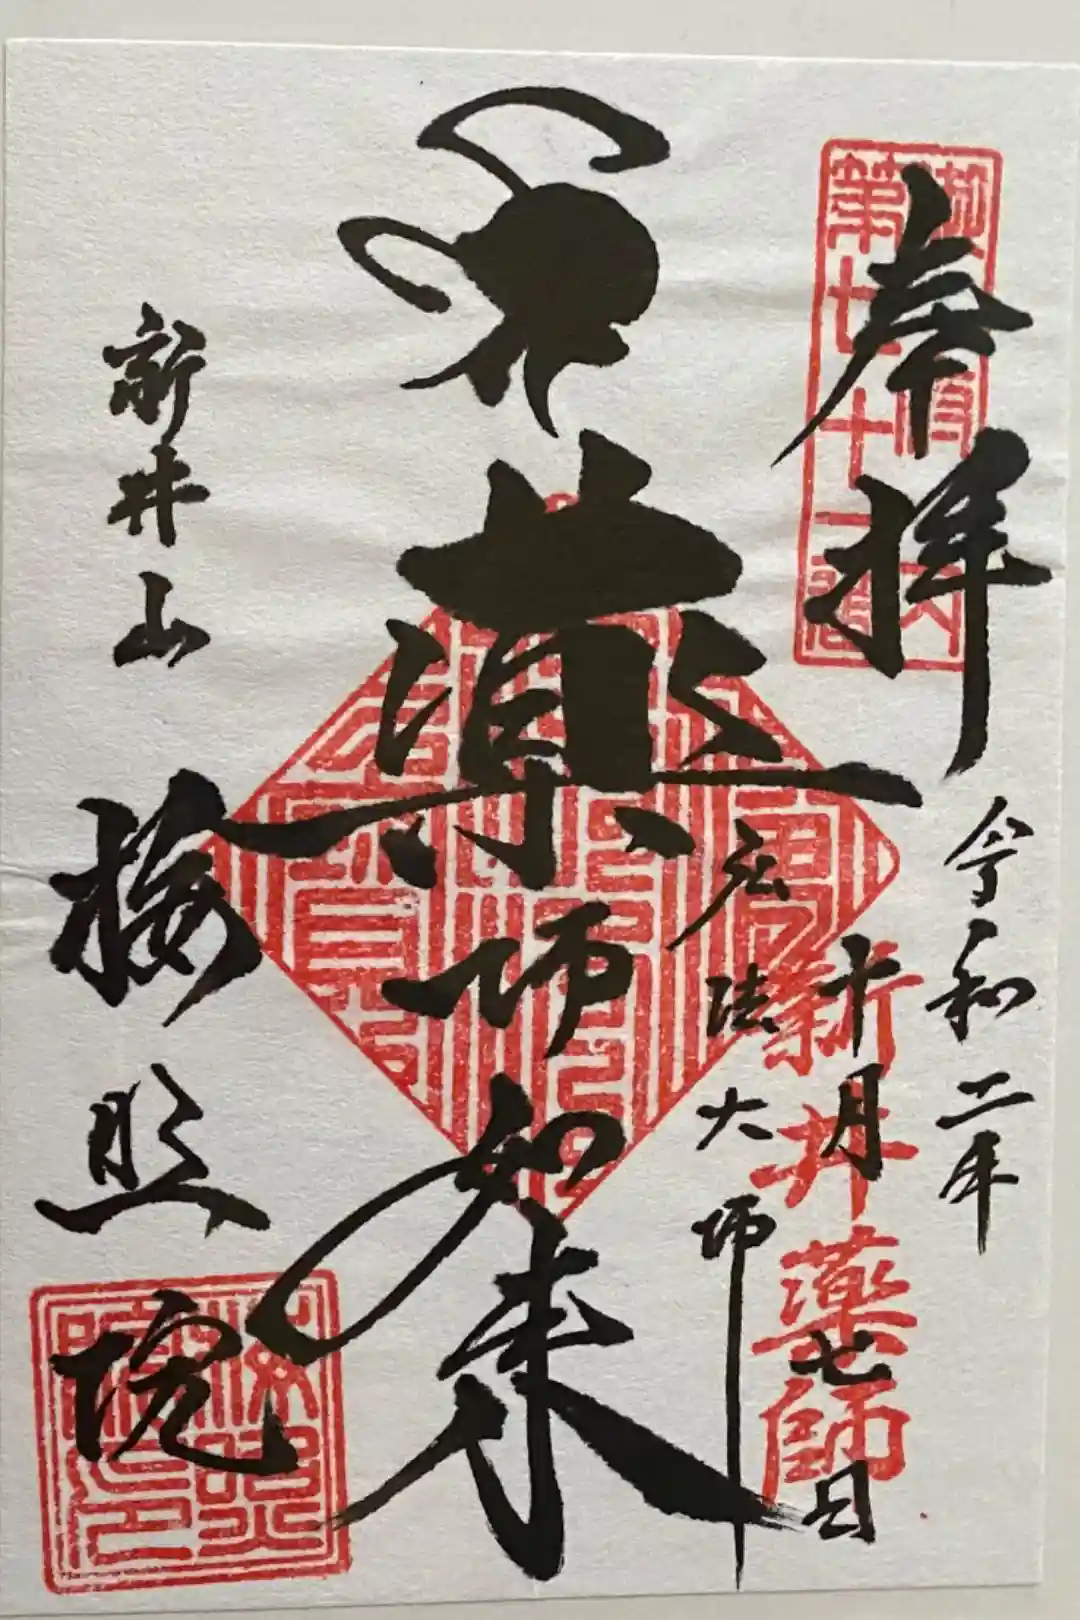 奉拝
令和二年
十月七日
新井薬師
弘法大師
薬師如来
新井山
梅照院